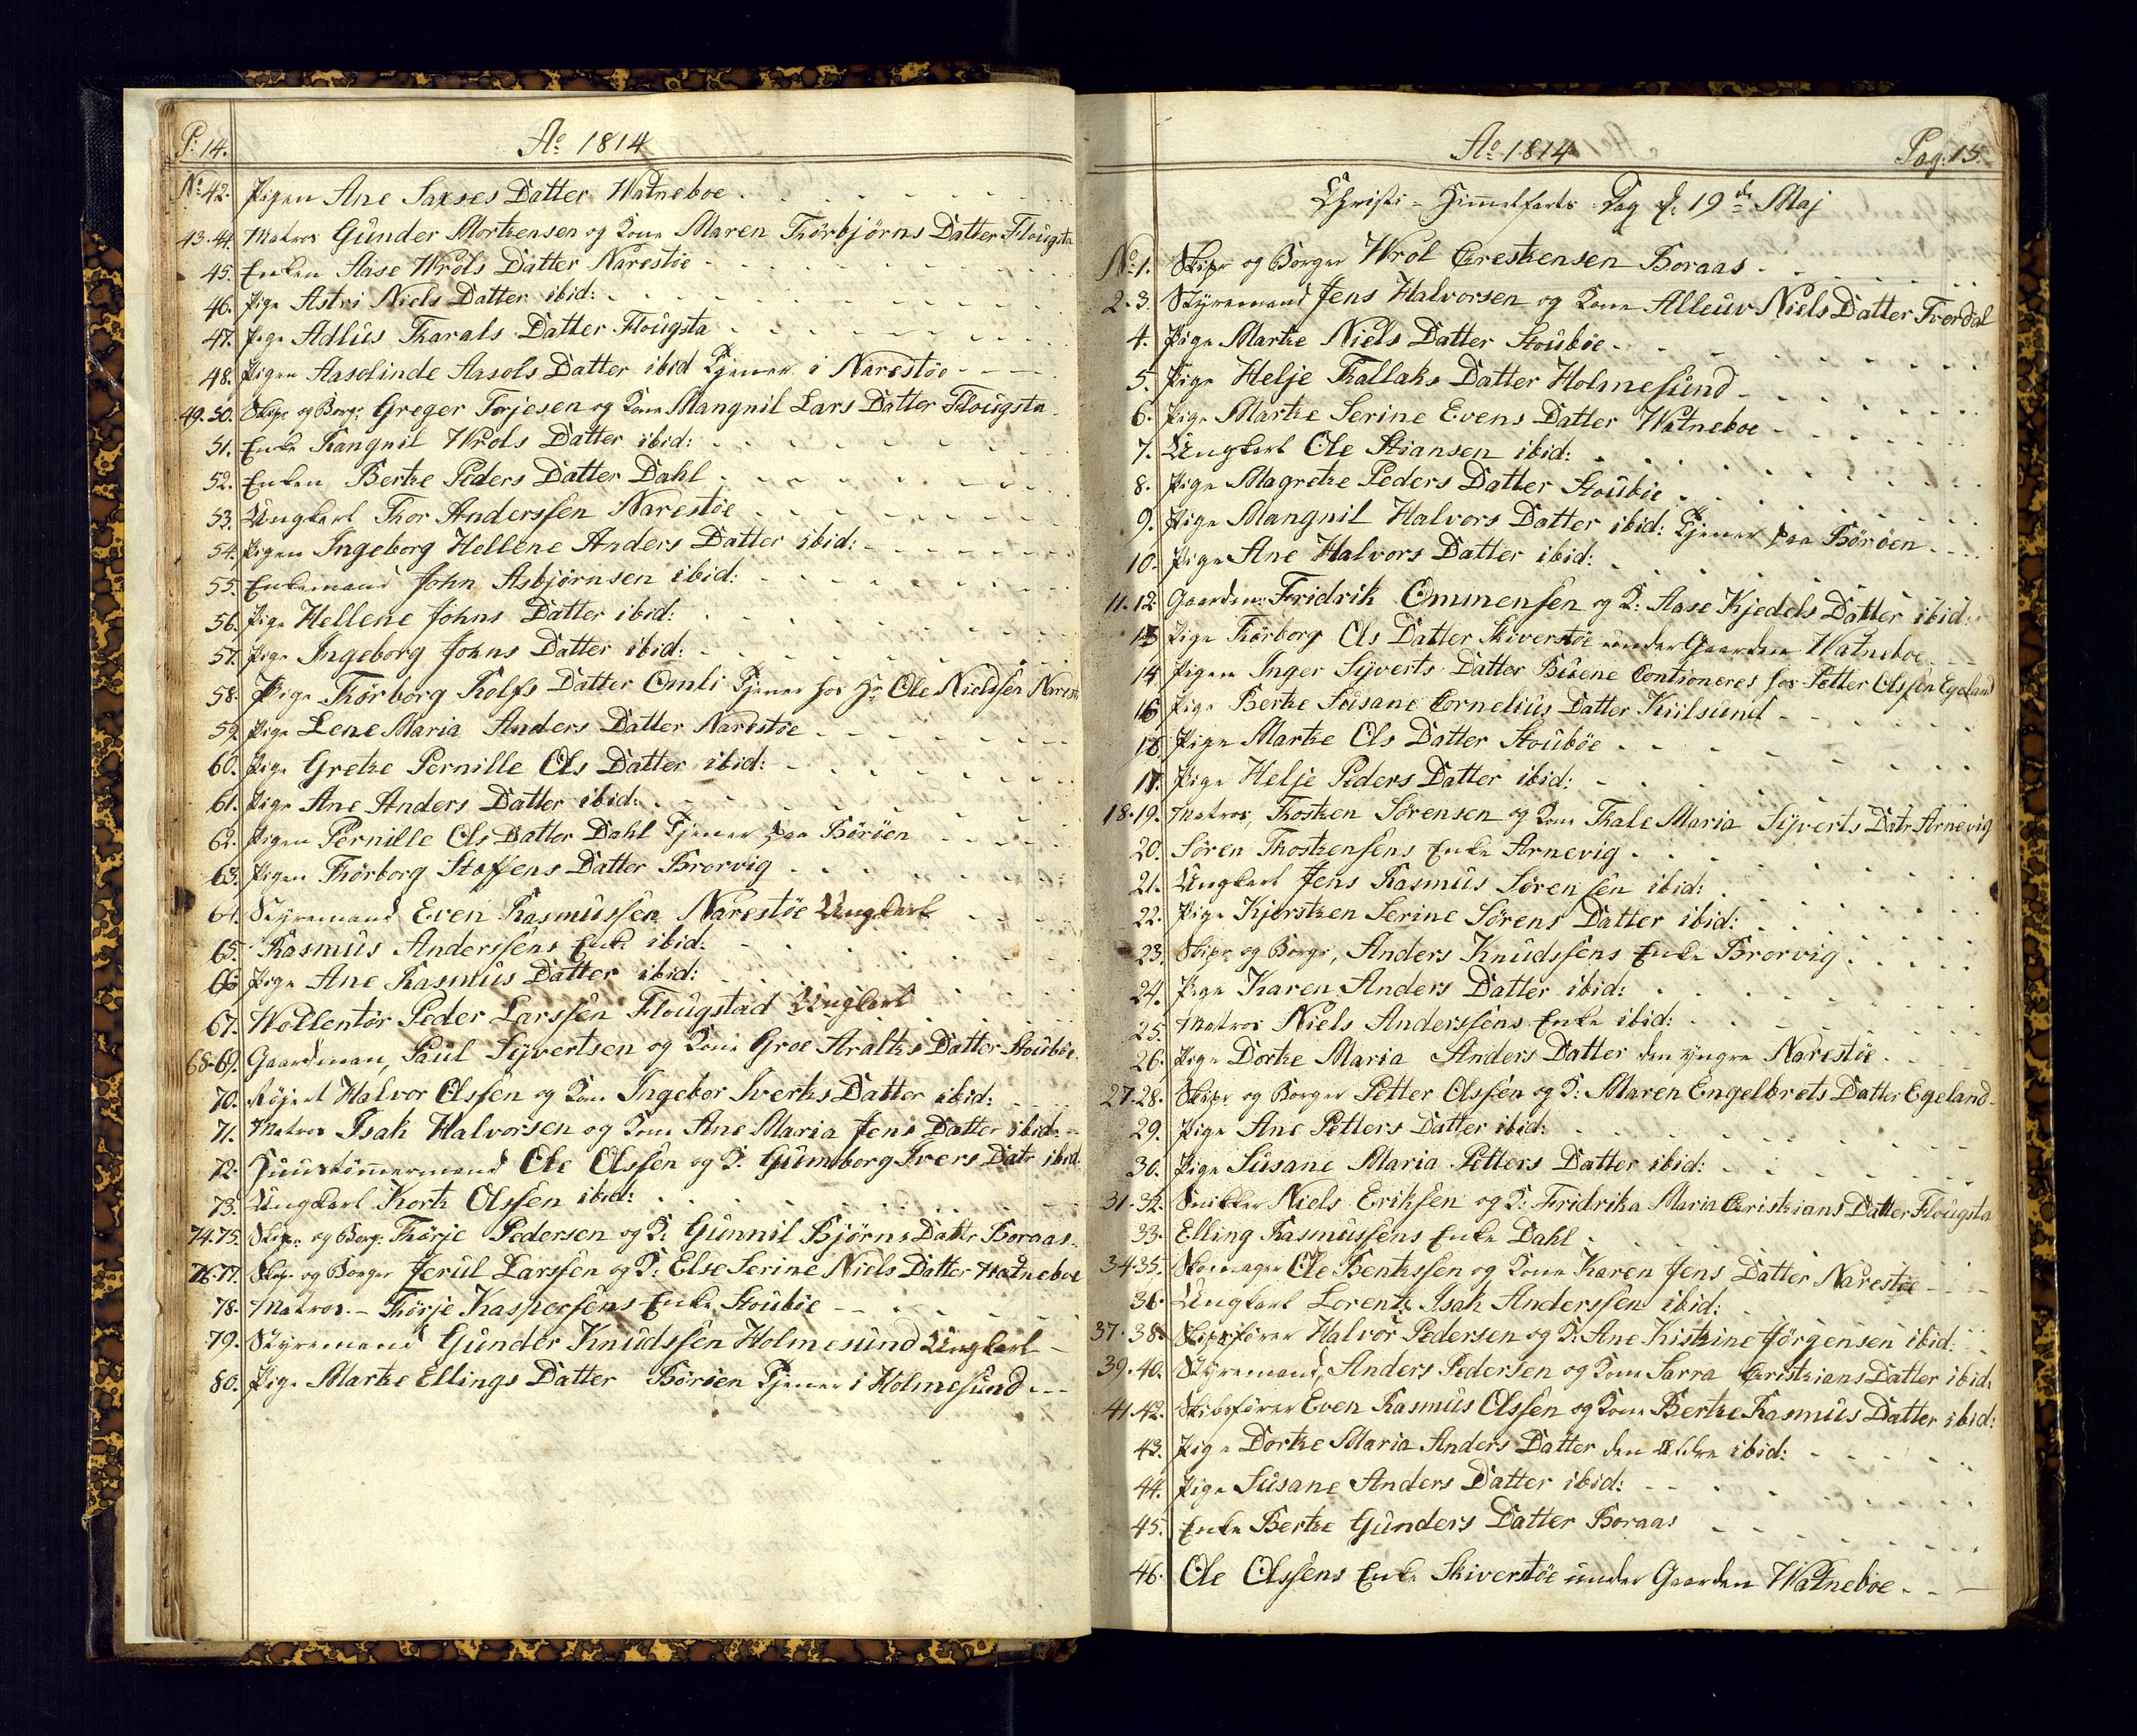 P: 14.
Ao 1814
No 42. Pigen Ane Saxses Datter Watneboe
43.44. Matros Gunder Mortensen og Kone Maren Thorbjørns Datter Flougsta
45. Enken Aase Wrols Datter Narestøe
46. Pige Astri Niels Datter ibid:
47. Pige Adlus Tharals Datter Flougsta
48. Pigen Aasolinde Aasols Datter ibid Tjener i Narestøe
49.50. Skipr og Borgr: Greger Torjesen og Kone Mangnil Lars Datter Flougsta
51. Enke Rangnil Wrols Datter ibid:
52. Enken Berthe Peders Datter Dahl
53. Ungkarl Thor Anderssen Narestøe
54. Pigen Ingeborg Hellene Anders Datter ibid:
55. Enkemand John Asbjørnsen ibid:
56. Pige Hellene Johns Datter ibid:
57. Pige Ingeborg Johns Datter ibid:
58. Pige Thørborg Rolfs Datter Omli Tjener hos Hr Ole Nielssen Narest
59. Pige Lene Maria Anders Datter Narestøe
60. Pige Grethe Pernille Ols Datter ibid:
61. Pige Ane Anders Datter ibid:
62. Pigen Pernille Ols Datter Dahl Tjener paa Børøen
63. Pigen Thørborg Staffens Datter Brorvig
64. Styremand Even Rasmussen Narestøe Ungkarl
65. Rasmus Anderssens Enke ibid:
66 Pige Ane Rasmus Datter ibid:
67. Wollentør Peder Larssen Flougstad Ungkarl
68-69. Gaardman, Paul Syvertsen og Kone Groe Aralths Datter Stoubøe
70. Halvor Olssen og Kone Ingebor Iverts Datter ibid:
71. Matros Isak Halvorsen og Kone Ane Maria Jens Datter ibid:
72. Huustømmermand Ole Olssen og K: Gumborg Ivers Datr ibid
73. Ungkarl Korth Olssen ibid:
74.75. Skipr og Borg: Thørje Pedersen og K: Gunnil Bjørns Datter Boraas
76.77. Skipr og Borger Jerul Larssen og K: Else Serine Niels Datter Watneboe
78. Matros Thørje Kaspersens Enke Stoubøe
79. Styremand Gunder Knudssen Holmesund Ungkarl
80. Pige Marthe Ellings Datter Børøen Tjener i Holmesund
Ao 1814
Pag: 15.
Christi-Himmelfarts Dag d: 19de Maj
No 1. Skipr og Borger Wrol Chrestensen Boraas
2-3. Styremand Jens Halvorsen og Kone Alleuv Niels Datter Tverdal
4. Pige Marthe Niels Datter Stoubøe
5. Pige Helje Thallaks Datter Holmesund
6. Pige Marthe Serine Evens Datter Watneboe
7. Ungkarl Ole Stiansen ibid:
8. Pige Magrethe Peders Datter Stoubøe
9. Pige Mangnil Halvors Datter ibid: Tjener paa Børøen
10. Pige Ane Halvors Datter ibid:
11.12 Gaardm: Fridrik Ommensen og K: Aase Kjedels Datter ibid:
13 Pige Thørborg Ols Datter Skiverstøe under Gaarden Watneboe
14 Pigen Inger Syverts Datter Buene Contioneres hos Petter Olssen Egeland
16 Pige Berthe Susane Cornelius Datter Kiilsund
16. Pige Marthe Ols Datter Stoubøe
17. Pige Helje Peders Datter ibid:
18.19. Matros, Thosten Sørensen og Kone Thale Maria Syverts Datr Arnevig
20. Søren Thostensens Enke Arnevig
21. Ungkarl Jens Rasmus Sørensen ibid:
22. Pige Kjersten Serine Sørens Datter ibid:
23. Skipr og Borgr, Anders Knudssens Enke Brorvig
24. Pige Karen Anders Datter ibid:
25. Matros Niels Anderssens Enke ibid:
26. Pige Dorthe Maria Anders Datter den yngre Narestøe
27.28. Skipr og Borger Petter Olssen og K: Maren Engelbrets Datter Egeland
29. Pige Ane Petters Datter ibid:
30. Pige Susane Maria Petters Datter ibid:
31.32. Snikker Niels Eriksen og K: Fridrika Maria Christians Datter Flougsta
33. Elling Rasmussens Enke Dahl
34.35. Skomager Ole Bentssen og Kone Karen Jens Datter Narestøe
36. Ungkarl Lorentz Isak Anderssen ibid:
37.38. Skipsfører Halvor Pedersen og K: Ane Kistine Jørgensen ibid:
39.40. Styremand, Anders Pedersen og Kone Sarra Christians Datter ibid:
41.42. Skibsfører Even Rasmus Olssen og Kone Berthe Rasmus Datter ibid:
43. Pige Dorthe Maria Anders Datter den Eldre ibid:
44. Pige Susane Anders Datter ibid:
45. Enke Berthe Gunders Datter Boraas
46. Ole Olssens Enke Skiverstøe under Gaarden Watneboe